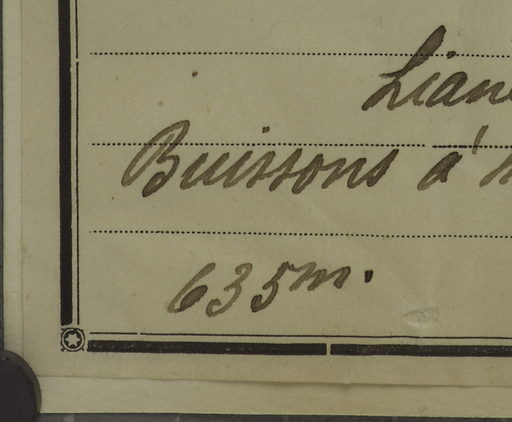 Liane
Buissons à
635m.